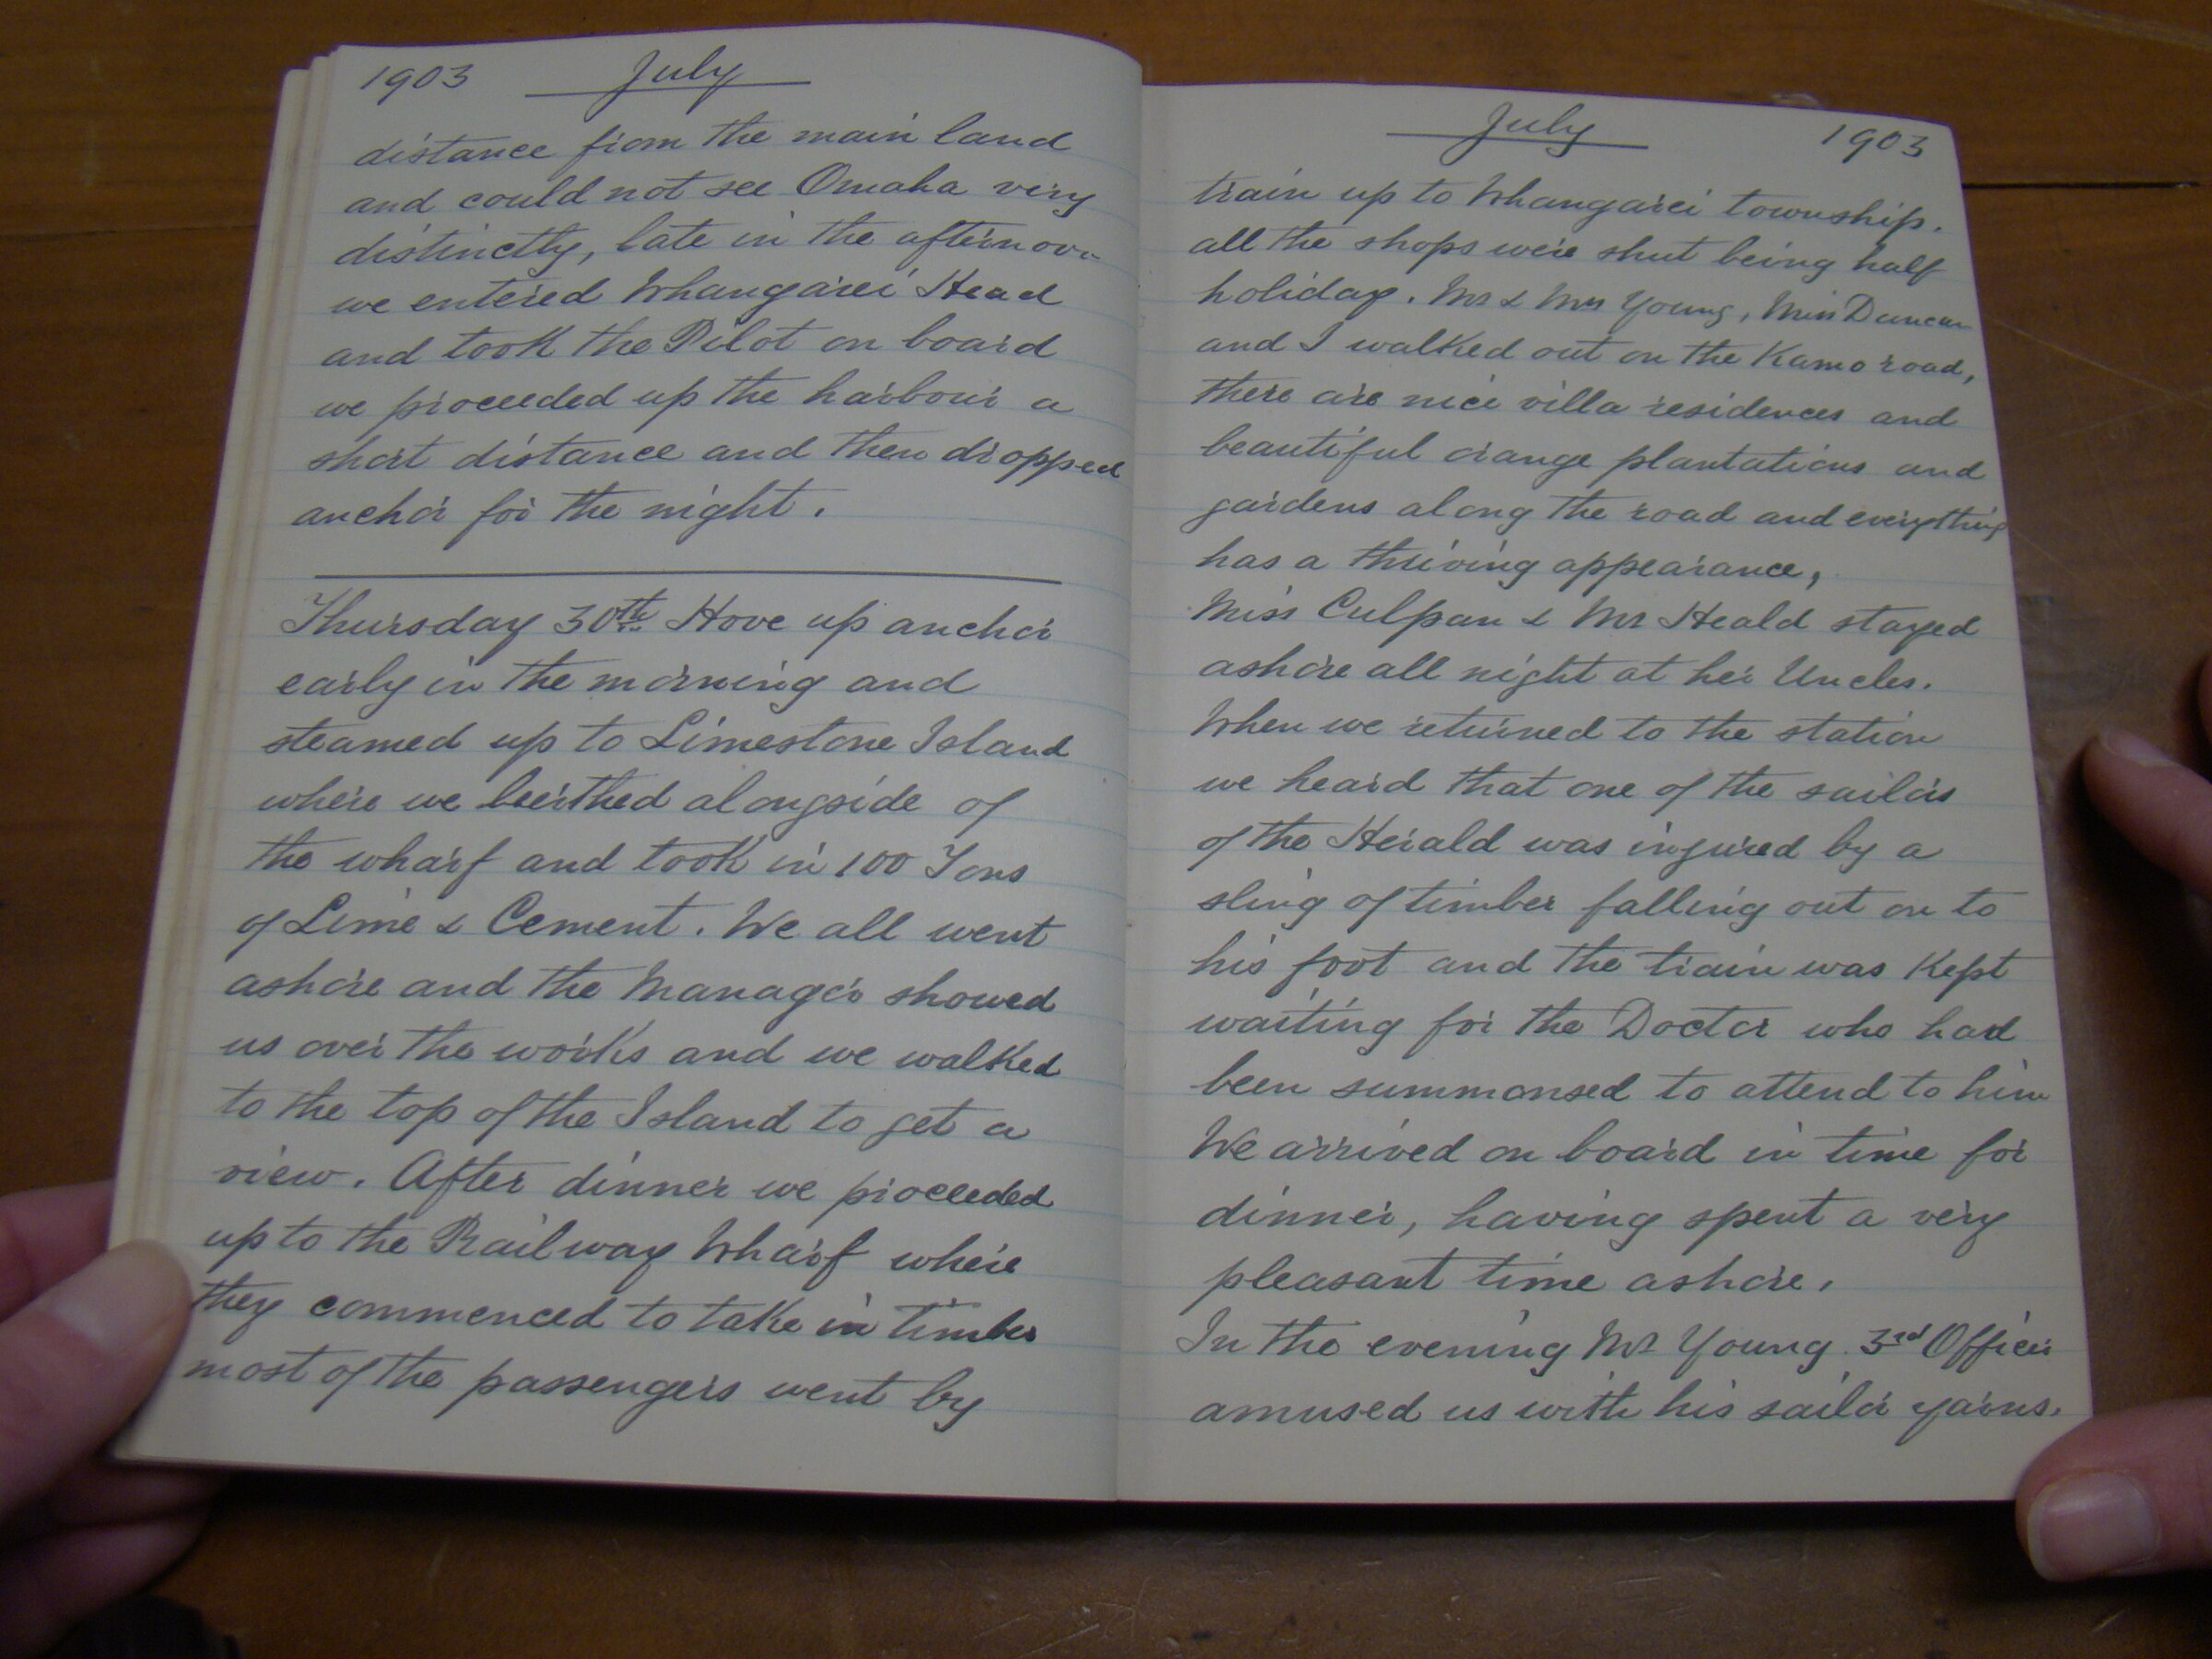 1903 July
distance from the main land
and could not see Omaha very
distinctly, late in the afternoon
we entered Whangarei Head
and took the Pilot on board
we proceeded up the harbour a
short distance and then dropped
anchor for the night.
Thursday 30th Hove up anchor
early in the morning and
steamed up to Limestone Island
where we beerthed alongside of
the wharf and took in 100 Tons
of Lime & Cement. We all went
ashore and the Manager showed
us over the works and we walked
to the top of the Island to get a
view. After dinner we proceeded
up to the Railway Wharf where
they commenced to take in timber
most of the passengers went by
July 1903
train up to Whangarei township.
all the shops were shut being half
holiday. Mr & Mrs Young, Miss Duncan
and I walked out on the Kamo road,
there are nice villa residences and
beautiful orange plantations and
gardens along the road and everything
has a thriving appearance,
Miss Culpan & Mr Heald stayed
ashore all night at her Uncles.
When we returned to the station
we heard that one of the sailors
of the Herald was injured by a
sling of timber falling out on to
his foot and the train was kept
waiting for the Doctor who had
been summonsed to attend to him
We arrived on board in time for
dinner, having spent a very
pleasant time ashore.
In the evening Mr Young 3rd Officer
amused us with his sailor yarns.